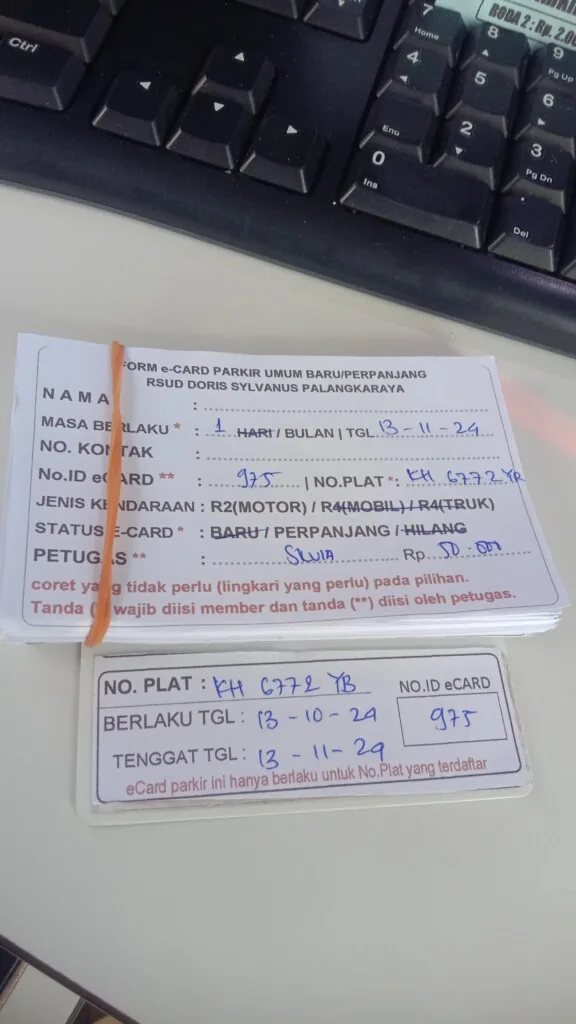 Ctrl
7
Home
8
9
Pg Up
4
5
6
End
2
3
Pg Dn
0
Ins
.
Del
RODA 2 : Rp. 2.00
FORM e-CARD PARKIR UMUM BARU/PERPANJANG
RSUD DORIS SYLVANUS PALANGKARAYA
NAMA :
MASA BERLAKU * : 1 HARI / BULAN | TGL 13-11-24
NO. KONTAK :
No.ID eCARD ** : 975 | NO.PLAT * : KH 6772 YB
JENIS KENDARAAN : R2(MOTOR) / R4(MOBIL) / R4(TRUK)
STATUS E-CARD * : BARU / PERPANJANG / HILANG
PETUGAS ** : Rp. 50.000
coret yang tidak perlu (lingkari yang perlu) pada pilihan.
Tanda ( wajib diisi member dan tanda (**) diisi oleh petugas.
NO. PLAT : KH 6772 YB
NO.ID eCARD
BERLAKU TGL : 13-10-24
975
TENGGAT TGL : 13-11-24
eCard parkir ini hanya berlaku untuk No.Plat yang terdaftar